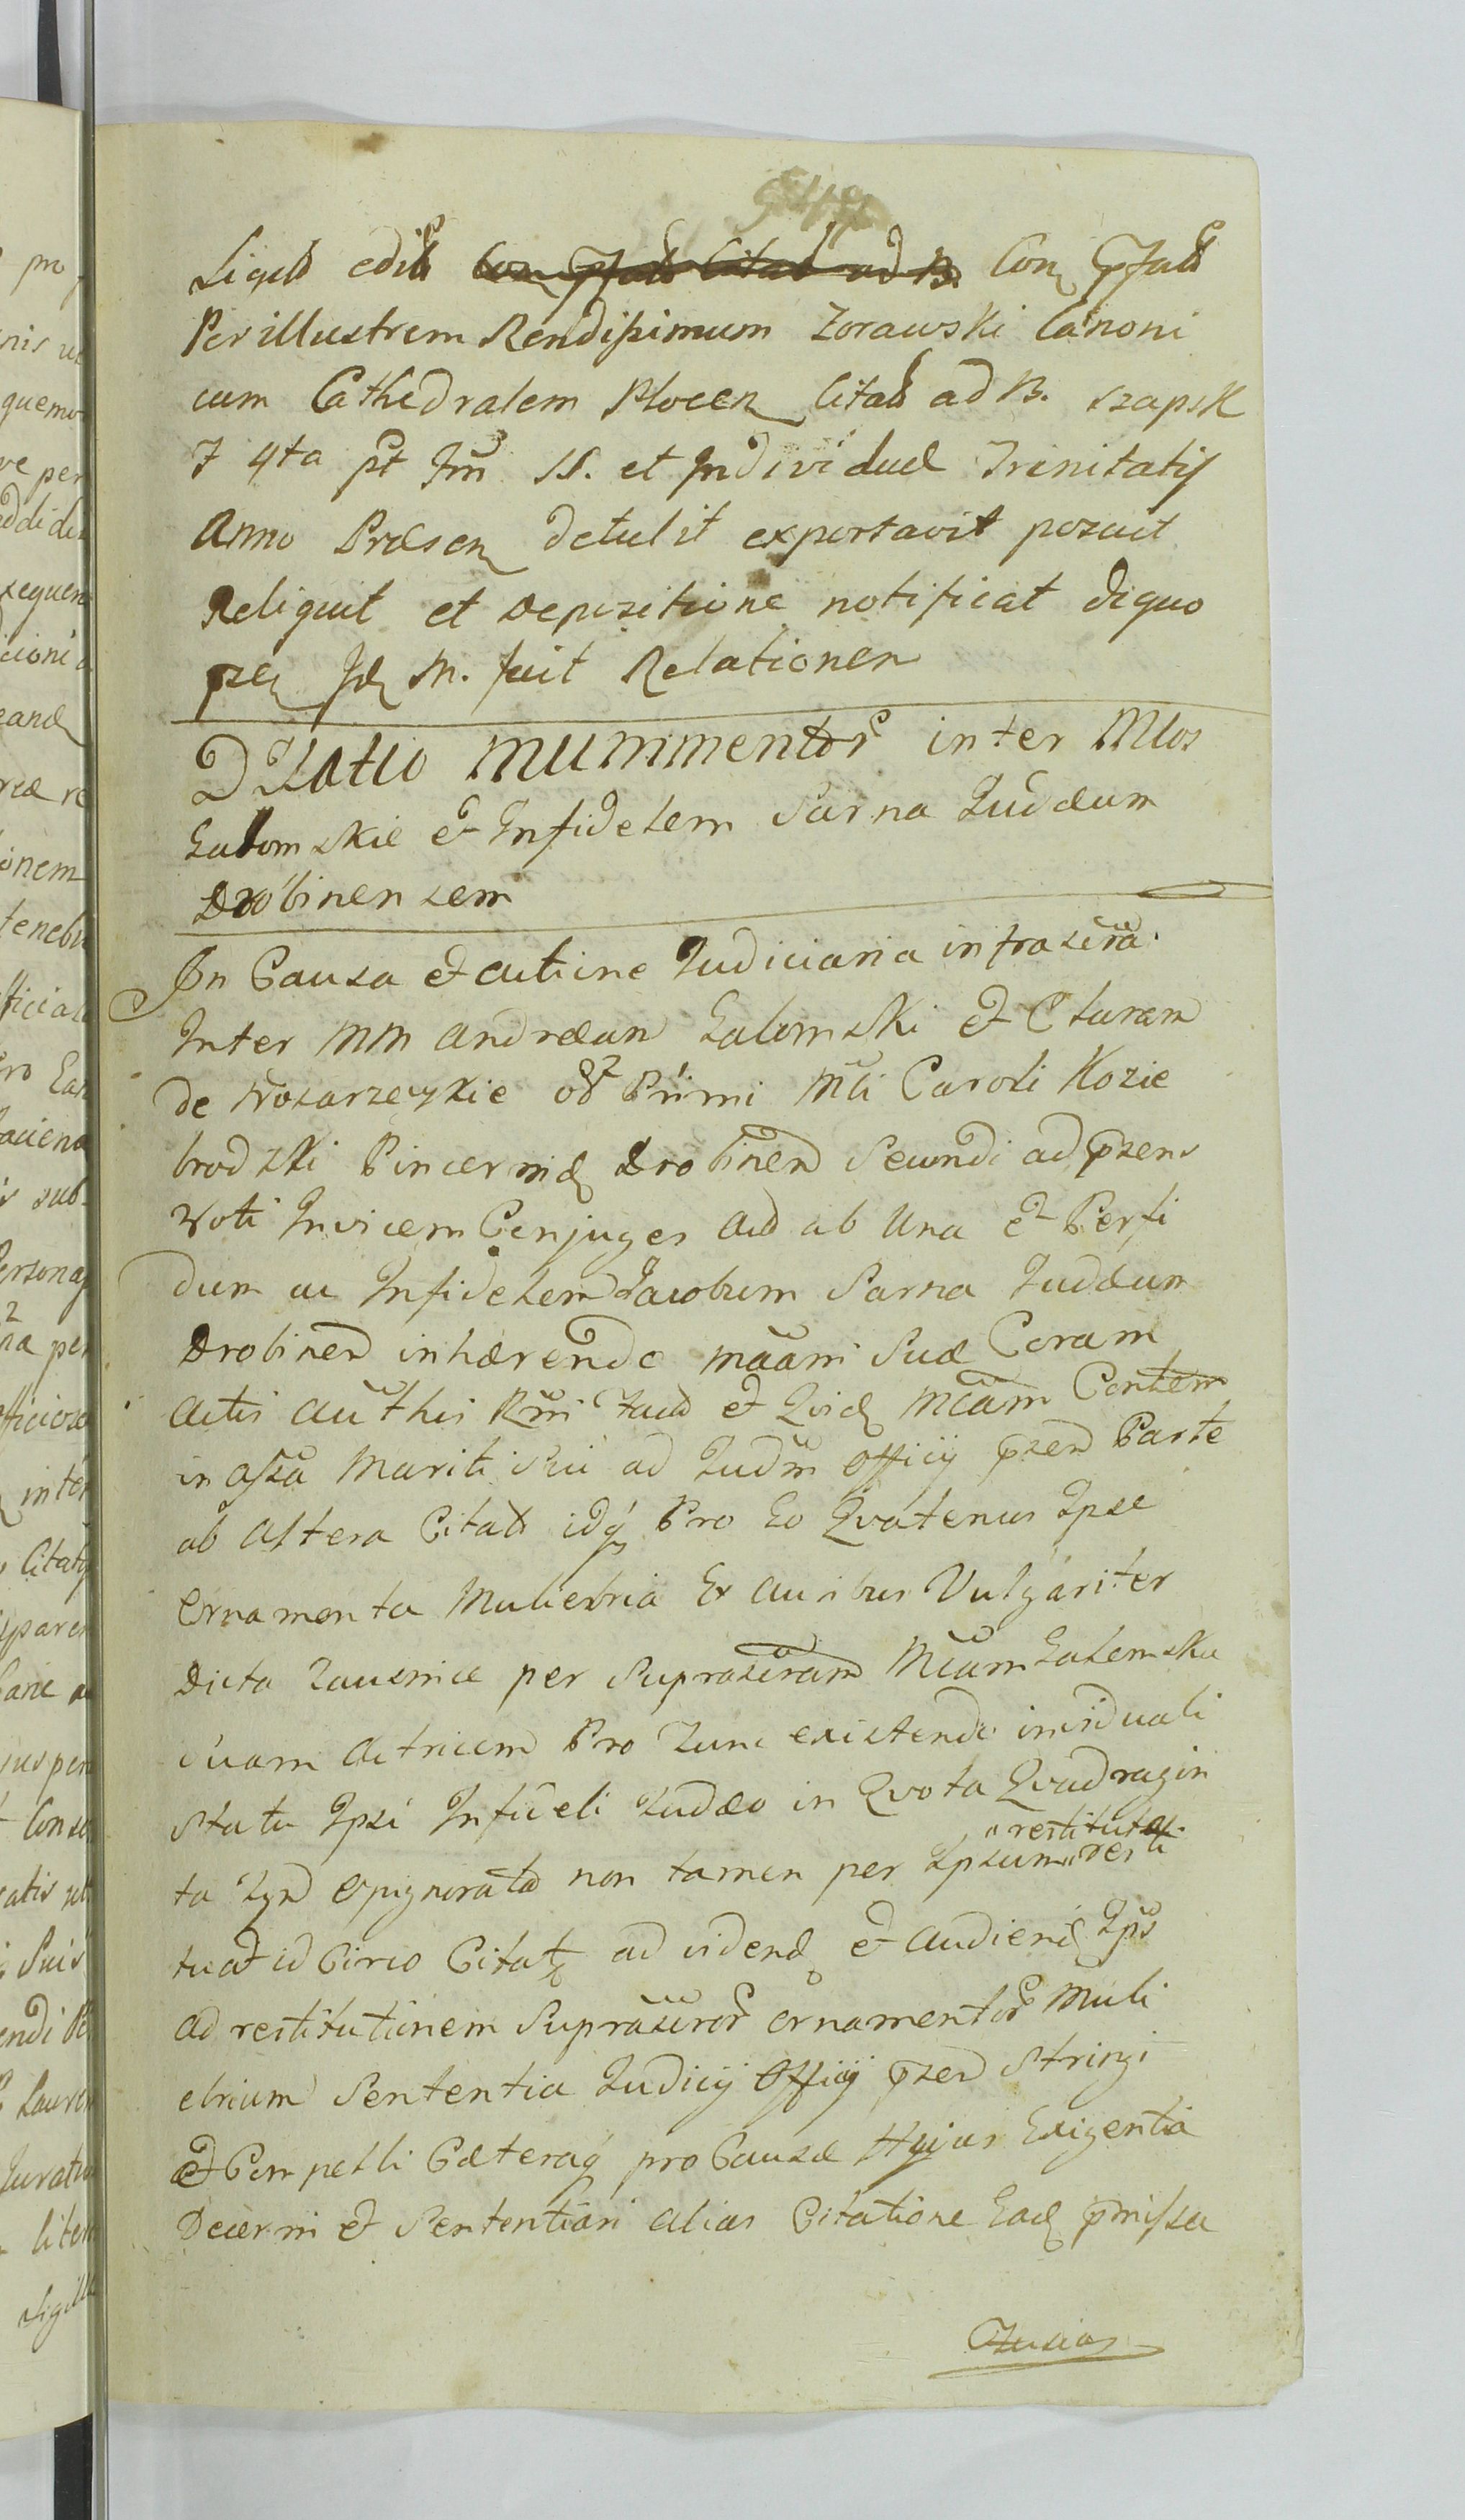 edit Con
Perillustrem Rendissimum Zorawski Canoni
cum Cathedralem Plocen Citat ad B. szapsk
F 4ta pt SS. et Individuæ Trinitatis
Anno Præsen detulit exportavit pozuit
Reliquit et depozitione notificat de quo
M. fuit Relationem
Dilatio mummentor inter Mlos
Zalomskie et Infidelem Sarna Judæum
Drobinensem
In Causa et actione Judiciaria infrascra
Inter MM Andream Zalomski et Claram
de Primi Mci Caroli Kozie
brodzki Pincernidæ Drobinen Secundi ad pzens
Voti Invicem Conjuges Act ab Una et Perfi
dum ac Infidelem Jacobum Sarna Judæum
Drobinen inhærendo Suæ Coram
Actis authis Rmi et Quid Mcam
in assa Mariti Sui ad Judm Officij pzen Parte
ab Altera Citat idq Pro Eo Quatenus Ipse
Ornamenta Muliebria Ex auribus Vulgariter
Dicta Zausnice per Suprascram Mcam Zalomska
suam Actricem Pro Tunc existendo inviduali
Statu Ipsi Infideli Judæo in Quota Quadragin
restituta
ta Tyn Opignorata non tamen per Ipsum resti
tuat id Circo Citat ad videnđ et audienđ Ips
ad restitutionem Suprascror Ornamentor Muli
ebrium Sententia Judicij Officij pzen Stringi
et Compelli Cæteraq pro Causæ Hujus Exigentia
Decerni et Sententiari alias Citatione Ead pmissa